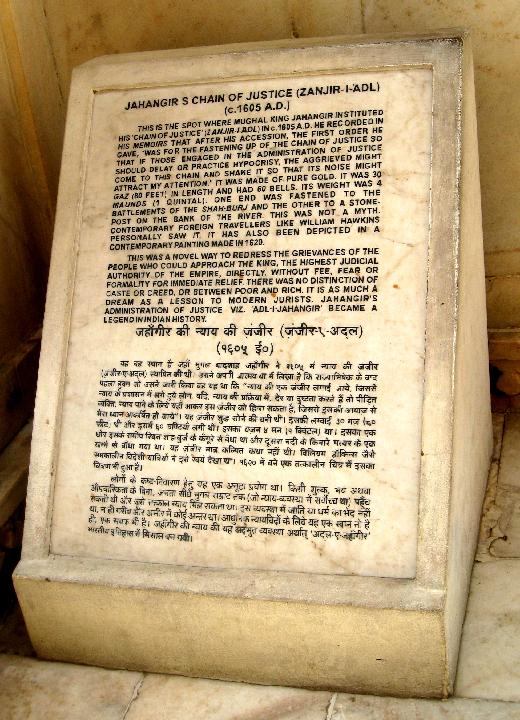 JAHANGIR'S CHAIN OF JUSTICE (ZANJIR-I-ADL)
(c.1605 A.D.)
THIS IS THE SPOT WHERE MUGHAL KING JAHANGIR INSTITUTED
HIS 'CHAIN OF JUSTICE' (ZANJIR-I-ADL) IN c.1605 A.D. HE RECORDED IN
HIS MEMOIRS THAT AFTER HIS ACCESSION, THE FIRST ORDER HE
GAVE, "WAS FOR THE FASTENING UP OF THE CHAIN OF JUSTICE SO
THAT IF THOSE ENGAGED IN THE ADMINISTRATION OF JUSTICE
SHOULD DELAY OR PRACTICE HYPOCRISY, THE AGGRIEVED MIGHT
COME TO THIS CHAIN AND SHAKE IT SO THAT ITS NOISE MIGHT
ATTRACT MY ATTENTION." IT WAS MADE OF PURE GOLD. IT WAS 30
GAZ (80 FEET) IN LENGTH AND HAD 60 BELLS. ITS WEIGHT WAS 4
MAUNDS (1 QUINTAL). ONE END WAS FASTENED TO THE
BATTLEMENTS OF THE SHAH-BURJ AND THE OTHER TO A STONE-
POST ON THE BANK OF THE RIVER. THIS WAS NOT A MYTH.
CONTEMPORARY FOREIGN TRAVELLERS LIKE WILLIAM HAWKINS
PERSONALLY SAW IT. IT HAS ALSO BEEN DEPICTED IN A
CONTEMPORARY PAINTING MADE IN 1620.
THIS WAS A NOVEL WAY TO REDRESS THE GRIEVANCES OF THE
PEOPLE WHO COULD APPROACH THE KING, THE HIGHEST JUDICIAL
AUTHORITY OF THE EMPIRE, DIRECTLY, WITHOUT FEE, FEAR OR
FORMALITY FOR IMMEDIATE RELIEF. THERE WAS NO DISTINCTION OF
CASTE OR CREED, OR BETWEEN POOR AND RICH. IT IS AS MUCH A
DREAM AS A LESSON TO MODERN JURISTS. JAHANGIR'S
ADMINISTRATION OF JUSTICE VIZ. 'ADL-I-JAHANGIR' BECAME A
LEGEND IN INDIAN HISTORY.
जहाँगीर की न्याय की जंजीर (ज़ंजीर-ए-अदल)
(१६०५ ई०)
यह वह स्थान है जहाँ मुग़ल बादशाह जहाँगीर ने १६०५ में न्याय की जंजीर
(ज़ंजीर-ए-अदल) स्थापित की थी। उसने अपनी आत्मकथा में लिखा है कि राज्याभिषेक के बाद
पहला हुक्म जो उसने जारी किया वह यह था कि "न्याय की एक जंजीर लगाई जाये, जिससे
न्याय के प्रशासन में लगे हुये लोग, यदि, न्याय की प्रक्रिया में, देर या दुष्टता करते हैं तो पीड़ित
व्यक्ति, न्याय पाने के लिये यहाँ आकर इस जंजीर को हिला सकता है, जिससे इसकी आवाज़ से
मेरा ध्यान आकर्षित हो जाये"। यह जंजीर शुद्ध सोने की बनी थी। इसकी लम्बाई ३० गज़ (८०
फीट) थी और इसमें ६० घण्टियाँ लगी थीं। इसका वज़न ४ मन (१ क्विंटल) था। इसका एक
छोर इसके समीप स्थित शाह-बुर्ज के कंगूरे से बंधा था और दूसरा नदी के किनारे पत्थर के एक
खम्भे से बाँधा गया था। यह जंजीर मात्र कल्पित कथा नहीं थी। विलियम हॉकिन्स जैसे
समकालीन विदेशी यात्रियों ने इसे स्वयं देखा था। १६२० में बने एक तत्कालीन चित्र में इसका
चित्रण भी हुआ है।
लोगों के कष्ट-निवारण हेतु यह एक अनूठा प्रयोग था। किसी शुल्क, भय अथवा
औपचारिकता के बिना, जनता सीधे मुग़ल सम्राट तक (जो न्याय-व्यवस्था में सर्वोच्च था) पहुँच
सकती थी और उसे तत्काल न्याय मिल सकता था। इस व्यवस्था में जाति या धर्म का भेद नहीं
था, न ही ग़रीब और अमीर में कोई अन्तर था। आधुनिक न्यायविदों के लिये यह एक स्वप्न तो है
ही, एक सबक़ भी है। जहाँगीर की न्याय की यह अद्भुत व्यवस्था अर्थात् 'अदल-ए-जहाँगीर'
भारतीय इतिहास में मिसाल बन गयी।